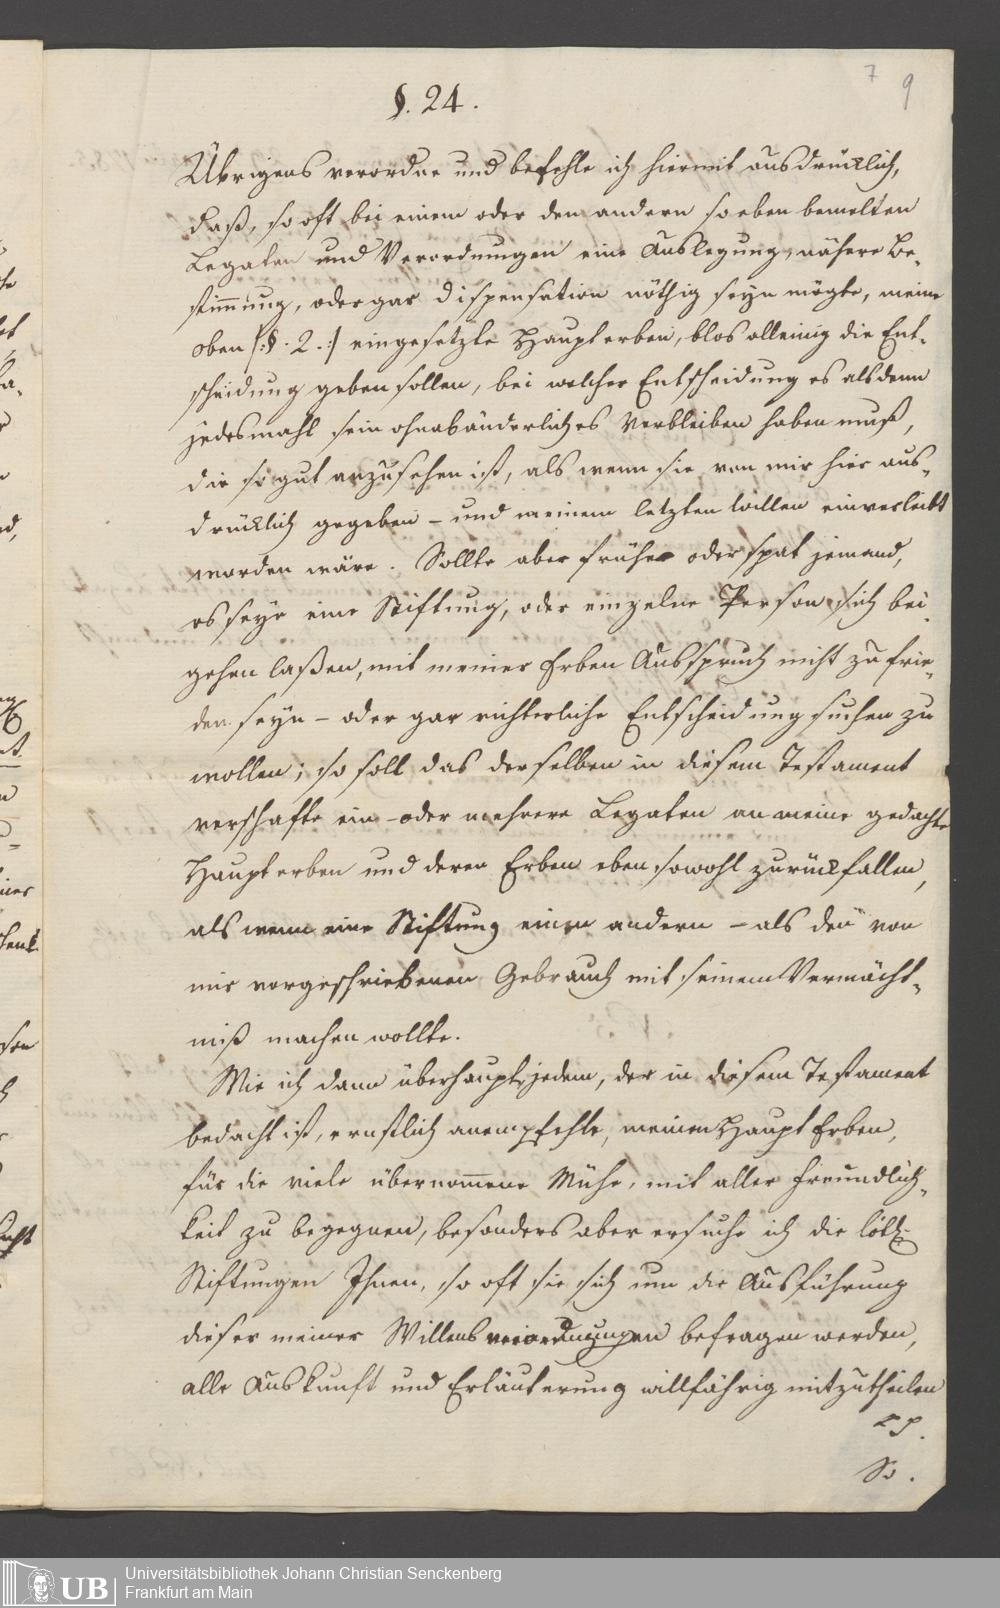 7 9
§. 24.
Übrigens verordne und befehle ich hiermit ausdrücklich,
daß, so oft bei einem oder den andern soeben bemelten
Legaten und Verordnungen eine Auslegung, nähere Be-
stim̄ung, oder gar Dispensation nöthig seyn mögte, meine
oben /: §. 2. :/ eingesetzte Haupterben, blos alleinig die Ent-
scheidung geben sollen, bei welcher Entscheidung es alsdenn
jedesmahl sein ohnabänderliches Verbleiben haben muß,
die so gut anzusehen ist, als wenn sie von mir hier aus-
drücklich gegeben – und meinem letzten Willen einverleibt
worden wäre. Sollte aber früher oder spat jemand,
es seye eine Stiftung, oder einzelne Person sich bei-
gehen laßen, mit meiner Erben Ausspruch nicht zufrie-
den seyn – oder gar richterliche Entscheidung suchen zu
wollen; so soll das derselben in diesem Testament
verschafte ein – oder mehrere Legaten an meine gedachte
Haupterben und deren Erben eben sowohl zurückfallen,
als wenn eine Stiftung einen andern – als den von
mir vorgeschriebenen Gebrauch mit seinem Vermächt-
niß machen wollte.
Wie ich dann überhaupt jedem, der in diesem Testament
bedacht ist, ernstlich anempfehle, meinen Haupt Erben,
für die viele übernom̄ene Mühe, mit aller Freundlich-
keit zu begegnen, besonders aber ersuche ich die löbl.
Stiftungen Ihnen, so oft sie sich um die Ausführung
dieser meiner Willensverordnungen befragen werden,
alle Auskunft und Erläuterung willfährig mitzutheilen
So.
UB
Universitätsbibliothek Johann Christian Senckenberg
Frankfurt am Main